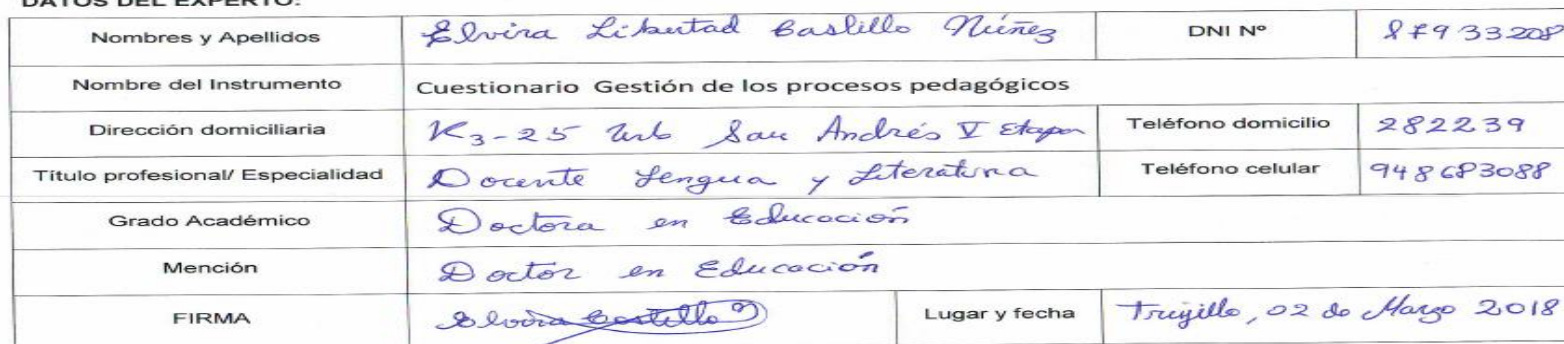 DATOS DEL EXPERTO:
Nombres y Apellidos Elvira Libertad Castillo Núñez DNI Nº
Nombre del Instrumento Cuestionario Gestión de los procesos pedagógicos
Dirección domiciliaria K3-25 Urb San Andrés V Etapa Teléfono domicilio 282239
Título profesional/ Especialidad Docente Lengua y Literatura Teléfono celular 948683088
Grado Académico Doctora en Educación
Mención Doctor en Educación
FIRMA Elvira Castillo Lugar y fecha Trujillo, 02 de Marzo 2018